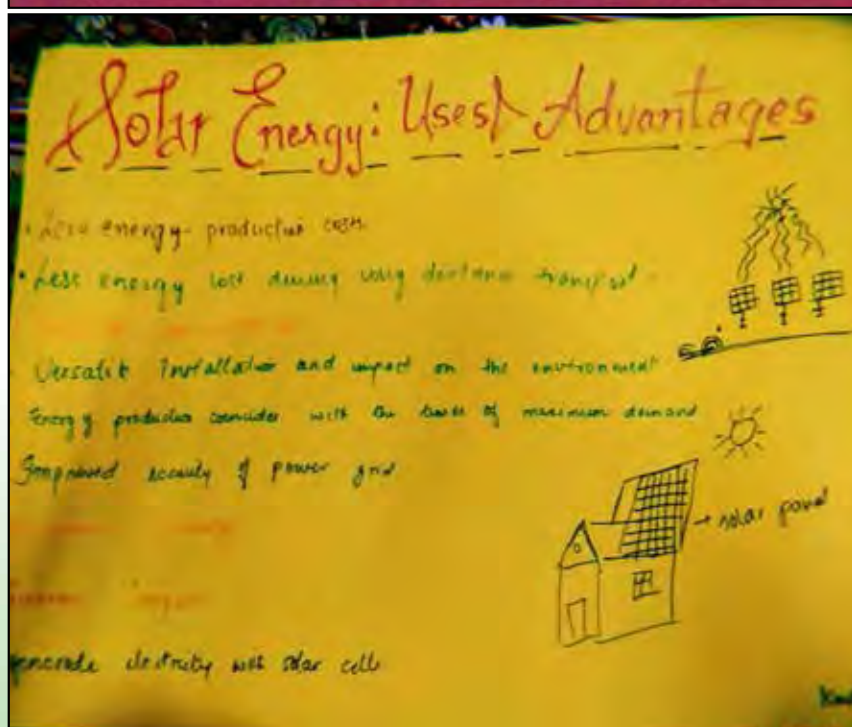 Solar Energy: Uses & Advantages
• Less energy production costs
• Less energy lost during long distance transport
Versatile Installation and impact on the environment
Energy production with the of maximum demand
Improved security of power grid
→ solar panel
generate electricity with solar cells